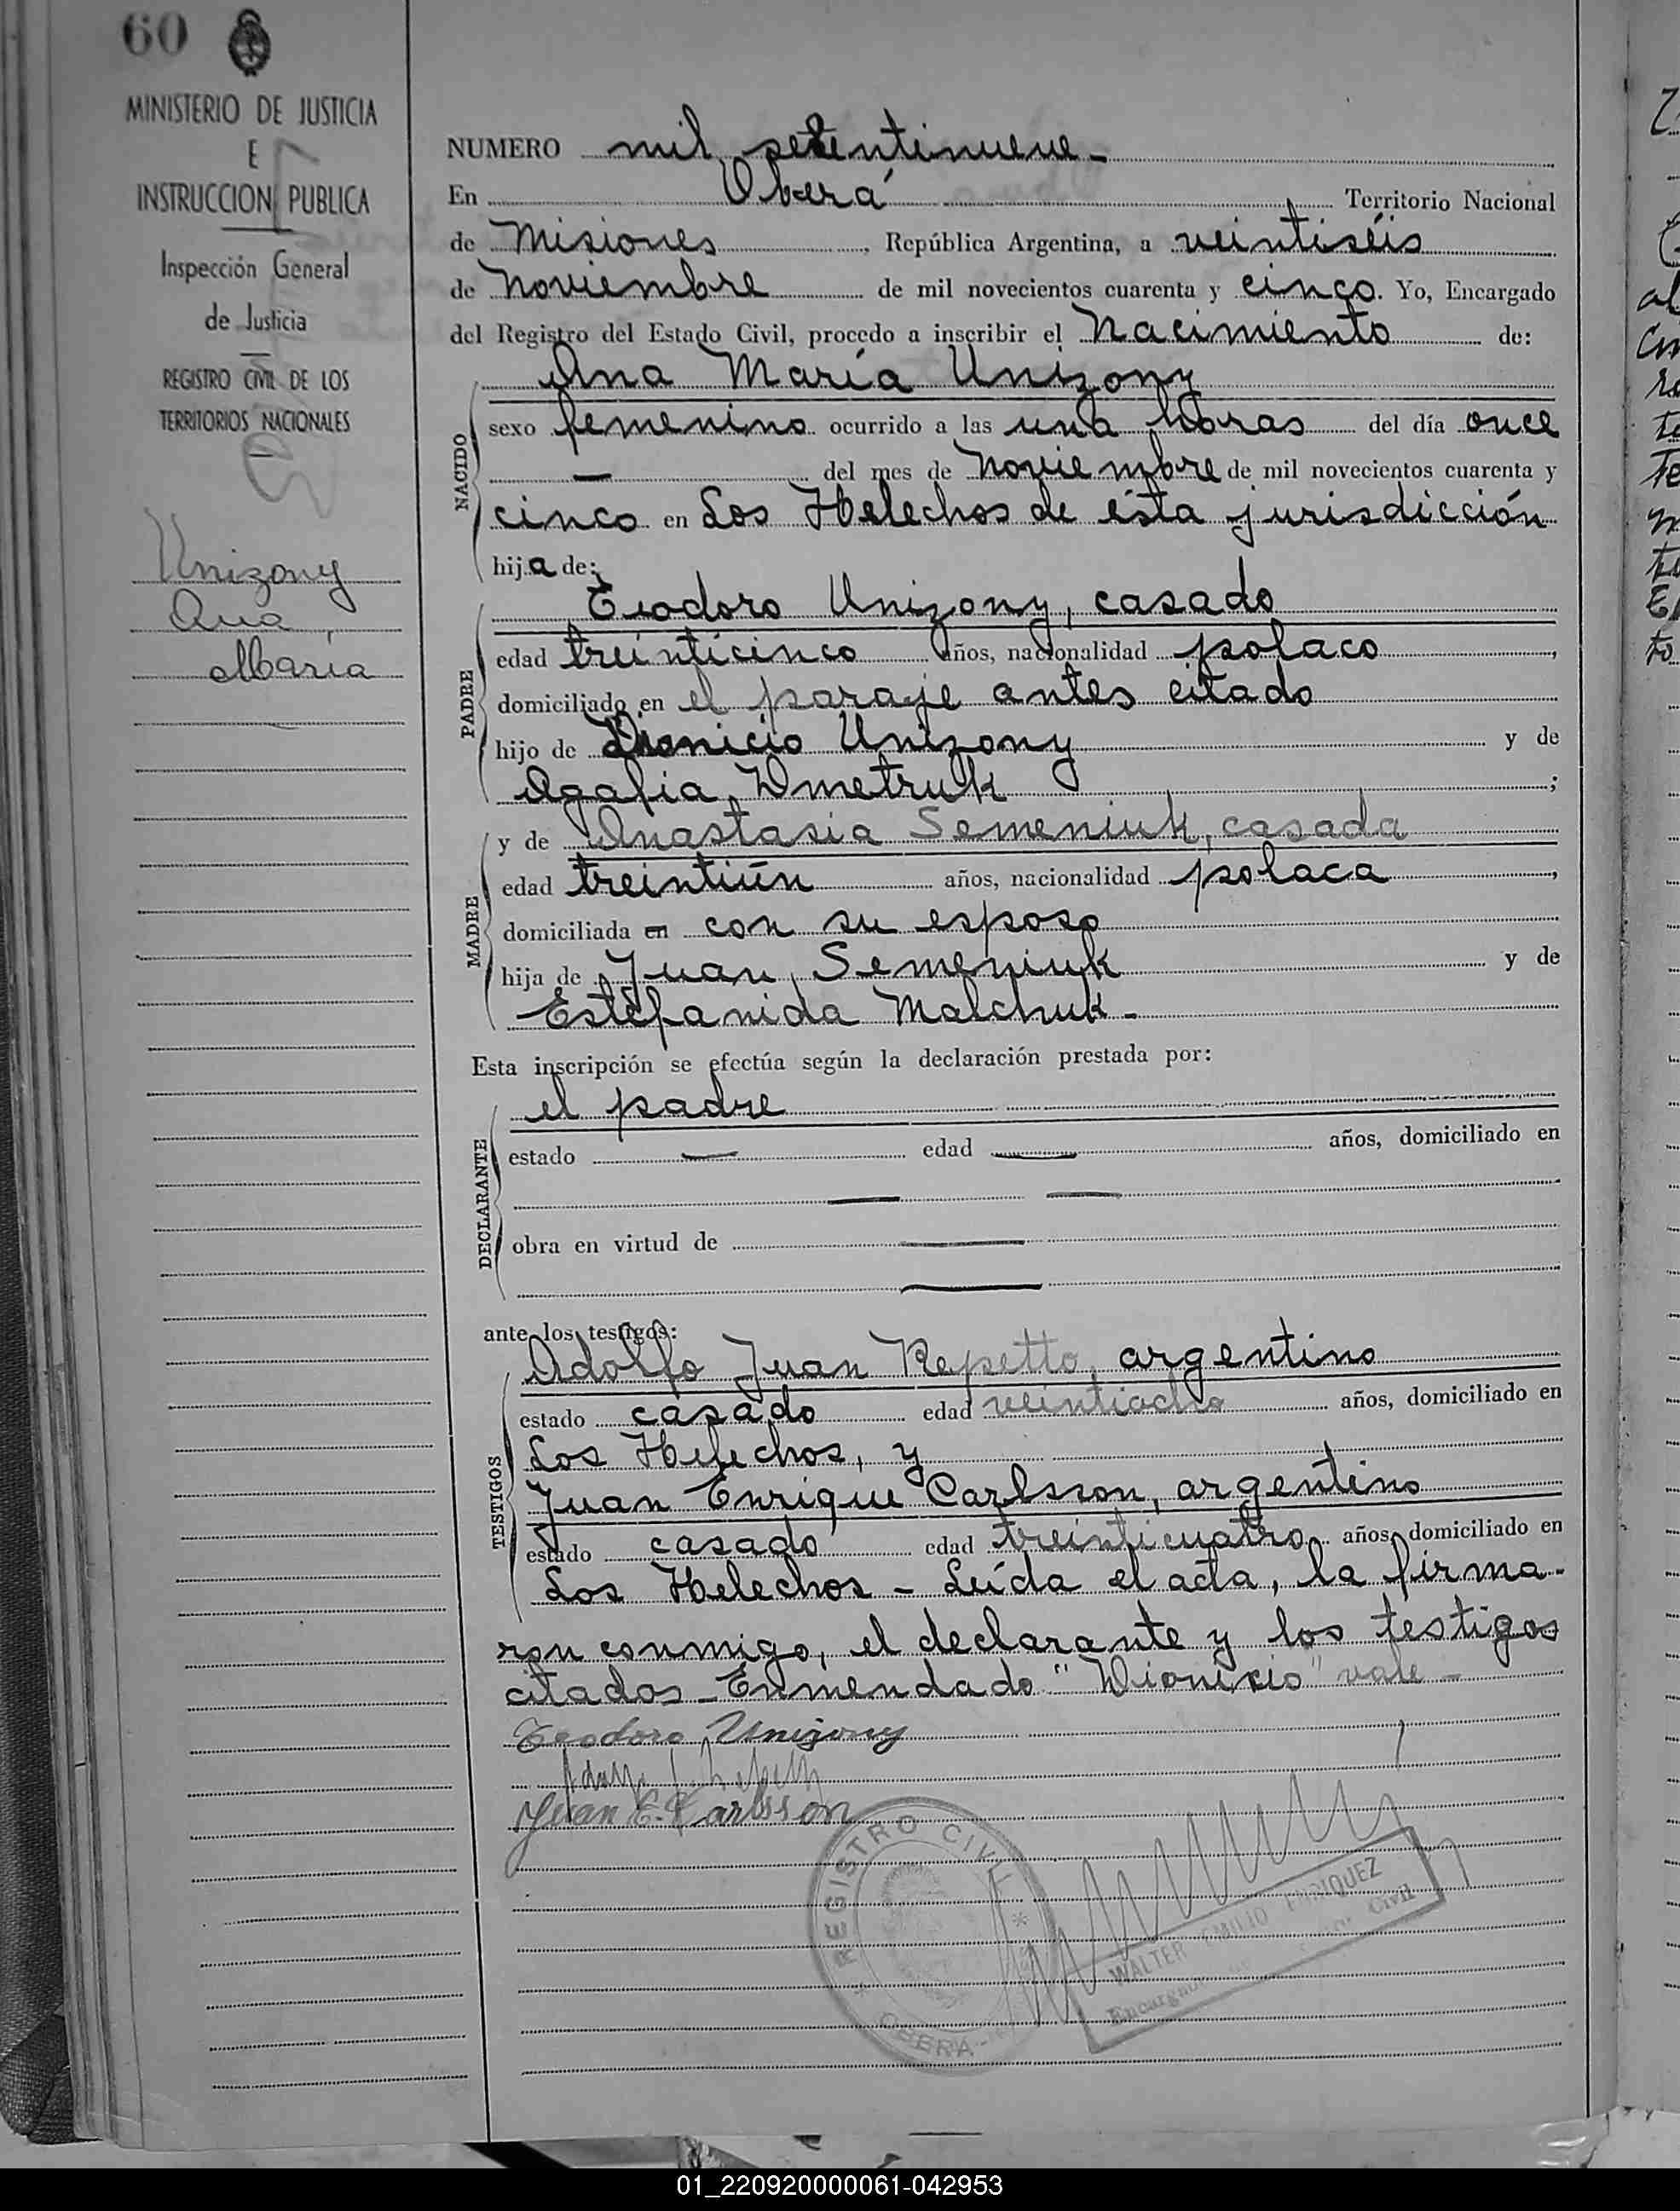 60
MINISTERIO DE JUSTICIA
E
INSTRUCCION PUBLICA
Inspección General
de Justicia
REGISTRO CIVIL DE LOS
TERRITORIOS NACIONALES
Unizony
Ana
María
NUMERO mil setentinueve-
En Oberá Territorio Nacional
de Misiones, República Argentina, a veintiséis
de Noviembre de mil novecientos cuarenta y cinco. Yo, Encargado
del Registro del Estado Civil, procedo a inscribir el Nacimiento de:
Ana María Unizony
NACIDO
sexo femenino ocurrido a las una horas del día once
— del mes de Noviembre de mil novecientos cuarenta y
cinco en Los Helechos de ésta jurisdicción
hija de:
PADRE
Teodoro Unizony, casado
edad treinticinco años, nacionalidad polaco,
domiciliado en el paraje antes citado
hijo de Dionicio Unizony y de
Agafia Dmetruk;
MADRE
y de Anastasia Semeniuk, casada
edad treintiún años, nacionalidad polaca,
domiciliada en con su esposo
hija de Juan Semeniuk y de
Estefanida Malchuk-
Esta inscripción se efectúa según la declaración prestada por:
DECLARANTE
el padre
estado — edad — años, domiciliado en
— —
obra en virtud de —
—
ante los testigos:
TESTIGOS
Adolfo Juan Repetto, argentino
estado casado edad veintiocho años, domiciliado en
Los Helechos, y
Juan Enrique Carlsson, argentino
estado casado edad treinticuatro años, domiciliado en
Los Helechos - Leída el acta, la firma-
ron conmigo, el declarante y los testigos
citados - Enmendado "Dionicio" vale-
Teodoro Unizony
Juan E. Carlsson
REGISTRO CIVIL
OBERA
WALTER EMILIO ENRIQUEZ
Encargado Civil
01_220920000061-042953